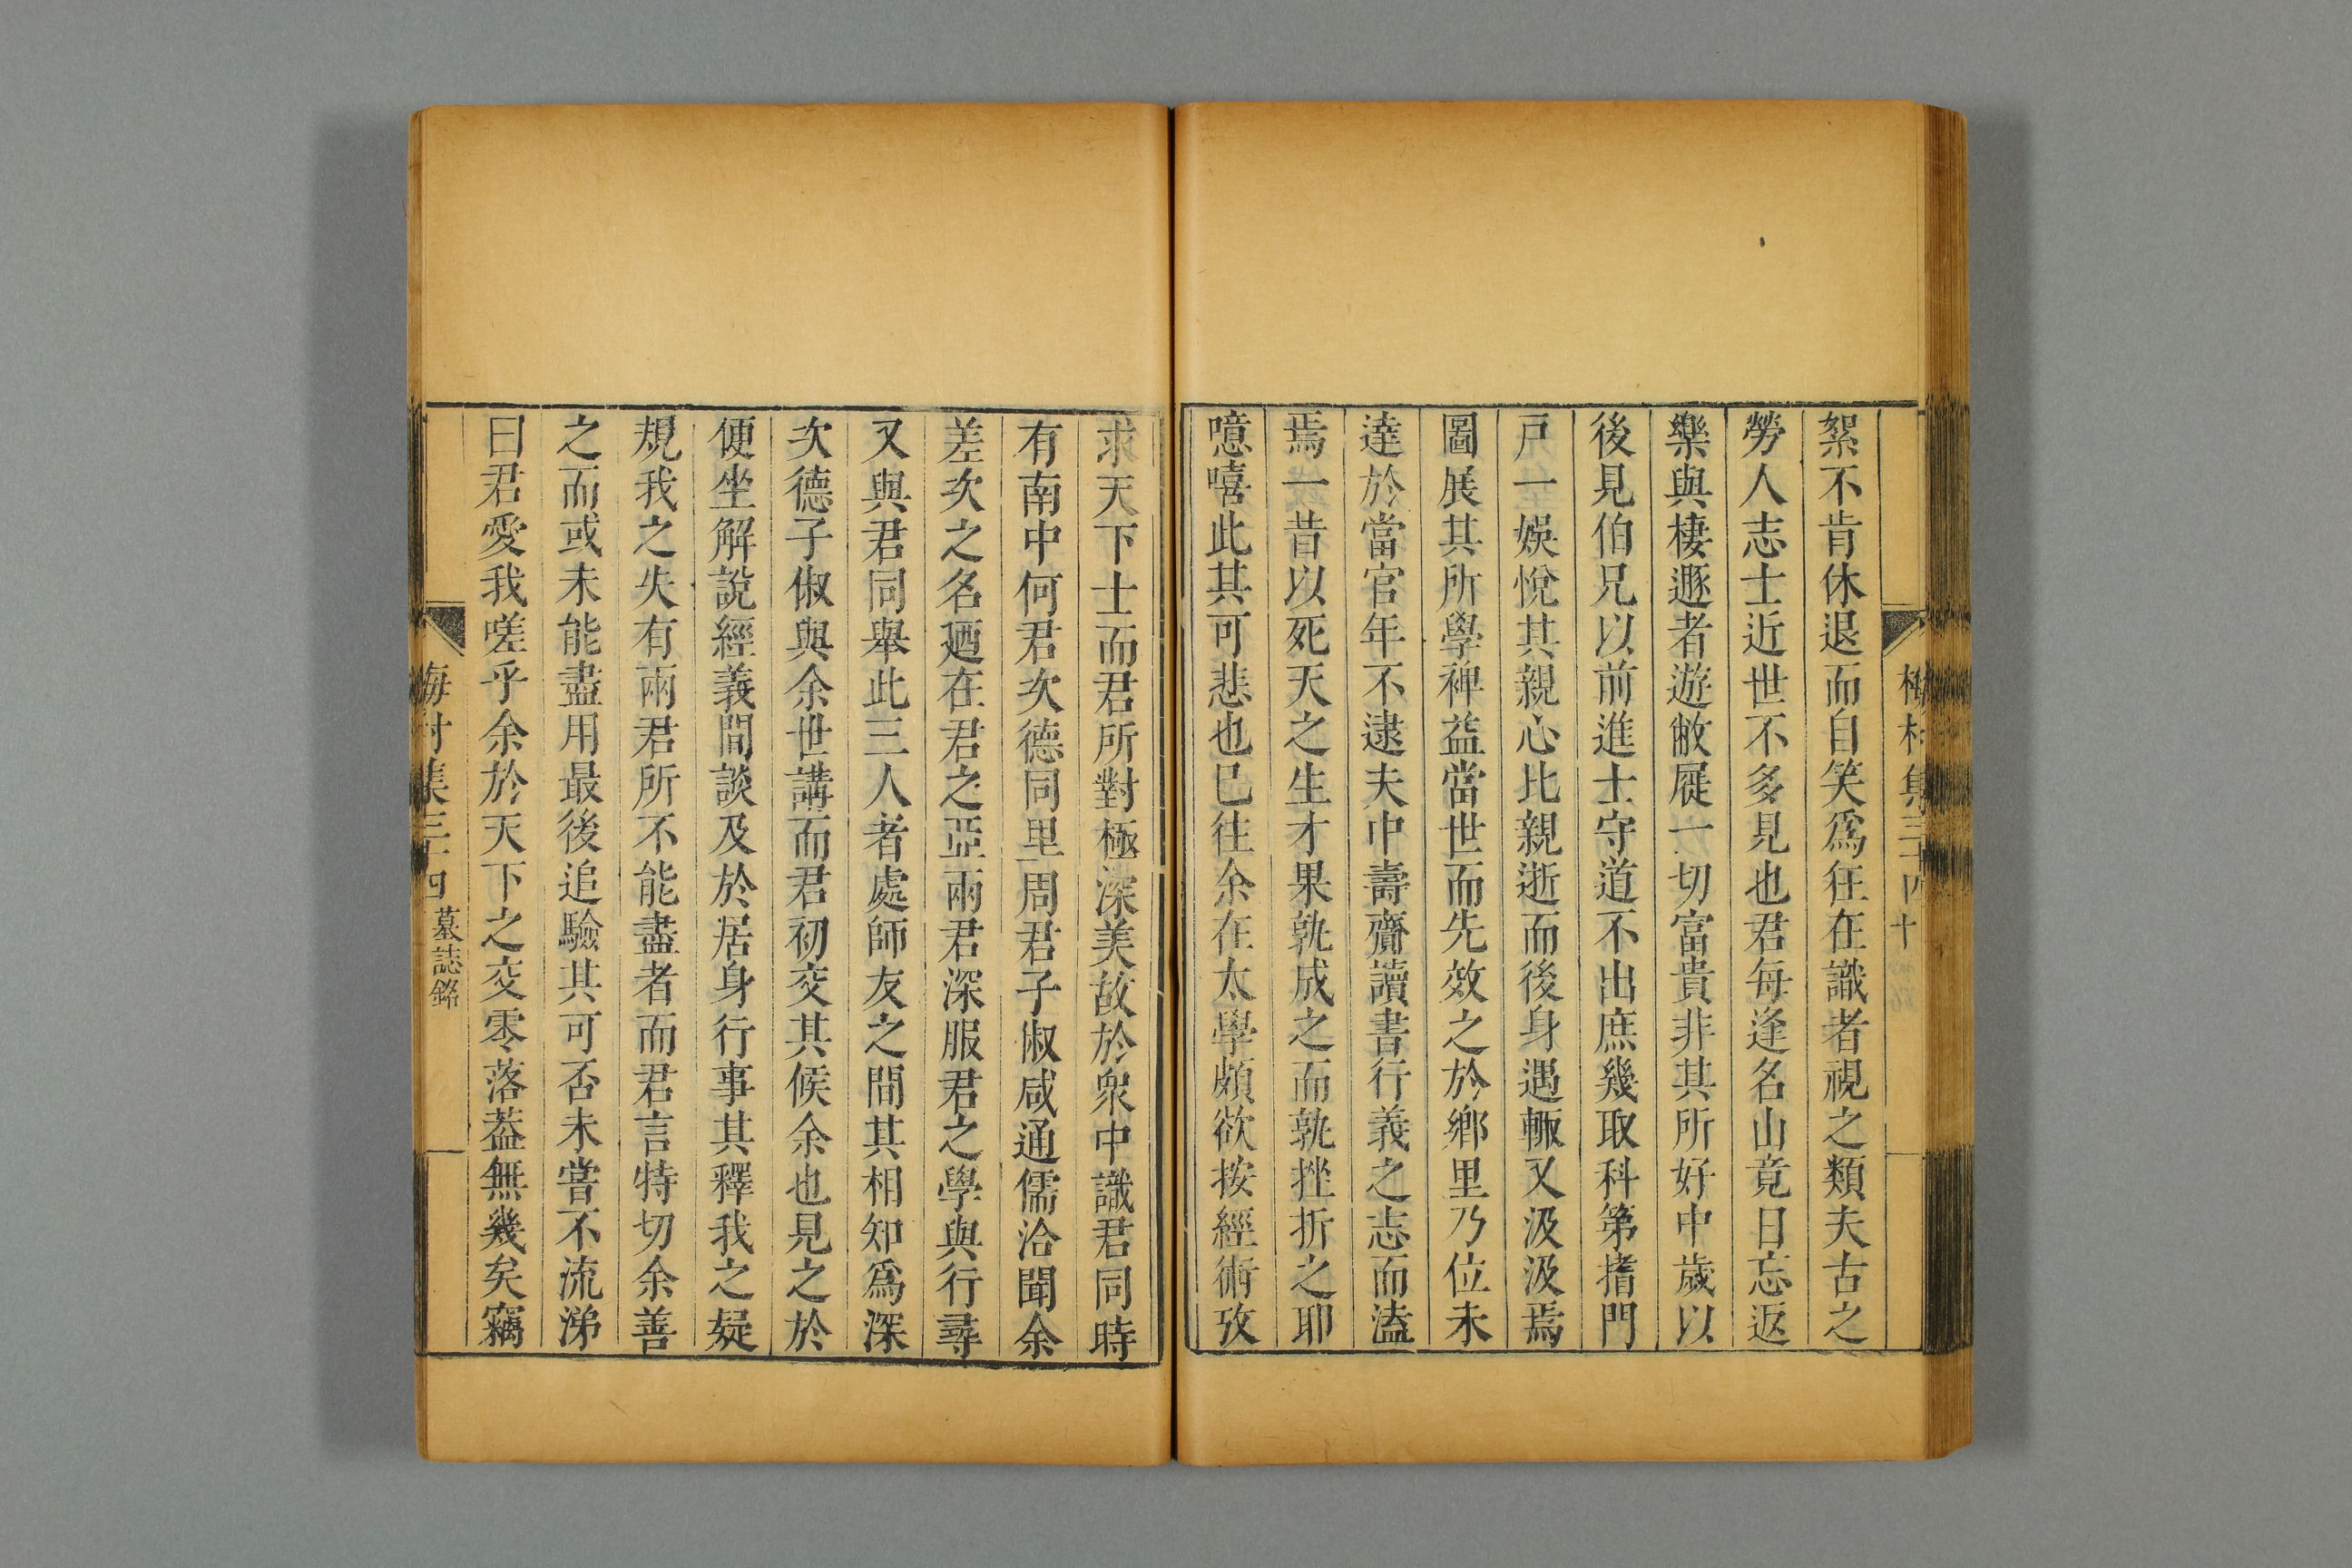 梅村集三十四 十
絮不肯休退而自笑爲狂在識者視之類夫古之
勞人志士近世不多見也君每逢名山竟日忘返
樂與棲遯者遊敝屣一切富貴非其所好中歲以
後見伯兄以前進士守道不出庶幾取科第搘門
戸一娛悅其親心比親逝而後身遇輙又汲汲焉
圖展其所學裨益當世而先效之於鄉里乃位未
達於當官年不逮夫中壽齎讀書行義之志而溘
焉一昔以死天之生才果孰成之而孰挫折之耶
噫嘻此其可悲也巳往余在太學頗欲按經術攷
求天下士而君所對極深美故於衆中識君同時
有南中何君次德同里周君子俶咸通儒洽聞余
差次之名廼在君之亞兩君深服君之學與行尋
又與君同舉此三人者處師友之間其相知爲深
次德子俶與余世講而君初交其候余也見之於
便坐解說經義間談及於居身行事其釋我之疑
規我之失有兩君所不能盡者而君言特切余善
之而或未能盡用最後追驗其可否未嘗不流涕
曰君愛我嗟乎余於天下之交零落葢無幾矣竊
梅村集三十四 墓誌銘